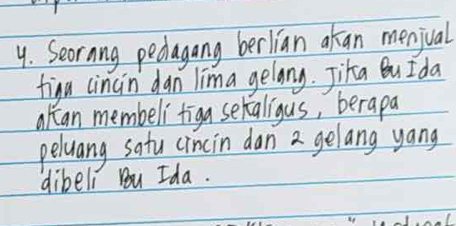 4. Seorang pedagang berlian akan menjual
tiga cincin dan lima gelang. Jika Bu Ida
akan membeli tiga sekaligus, berapa
peluang satu cincin dan 2 gelang yang
dibeli Bu Ida.